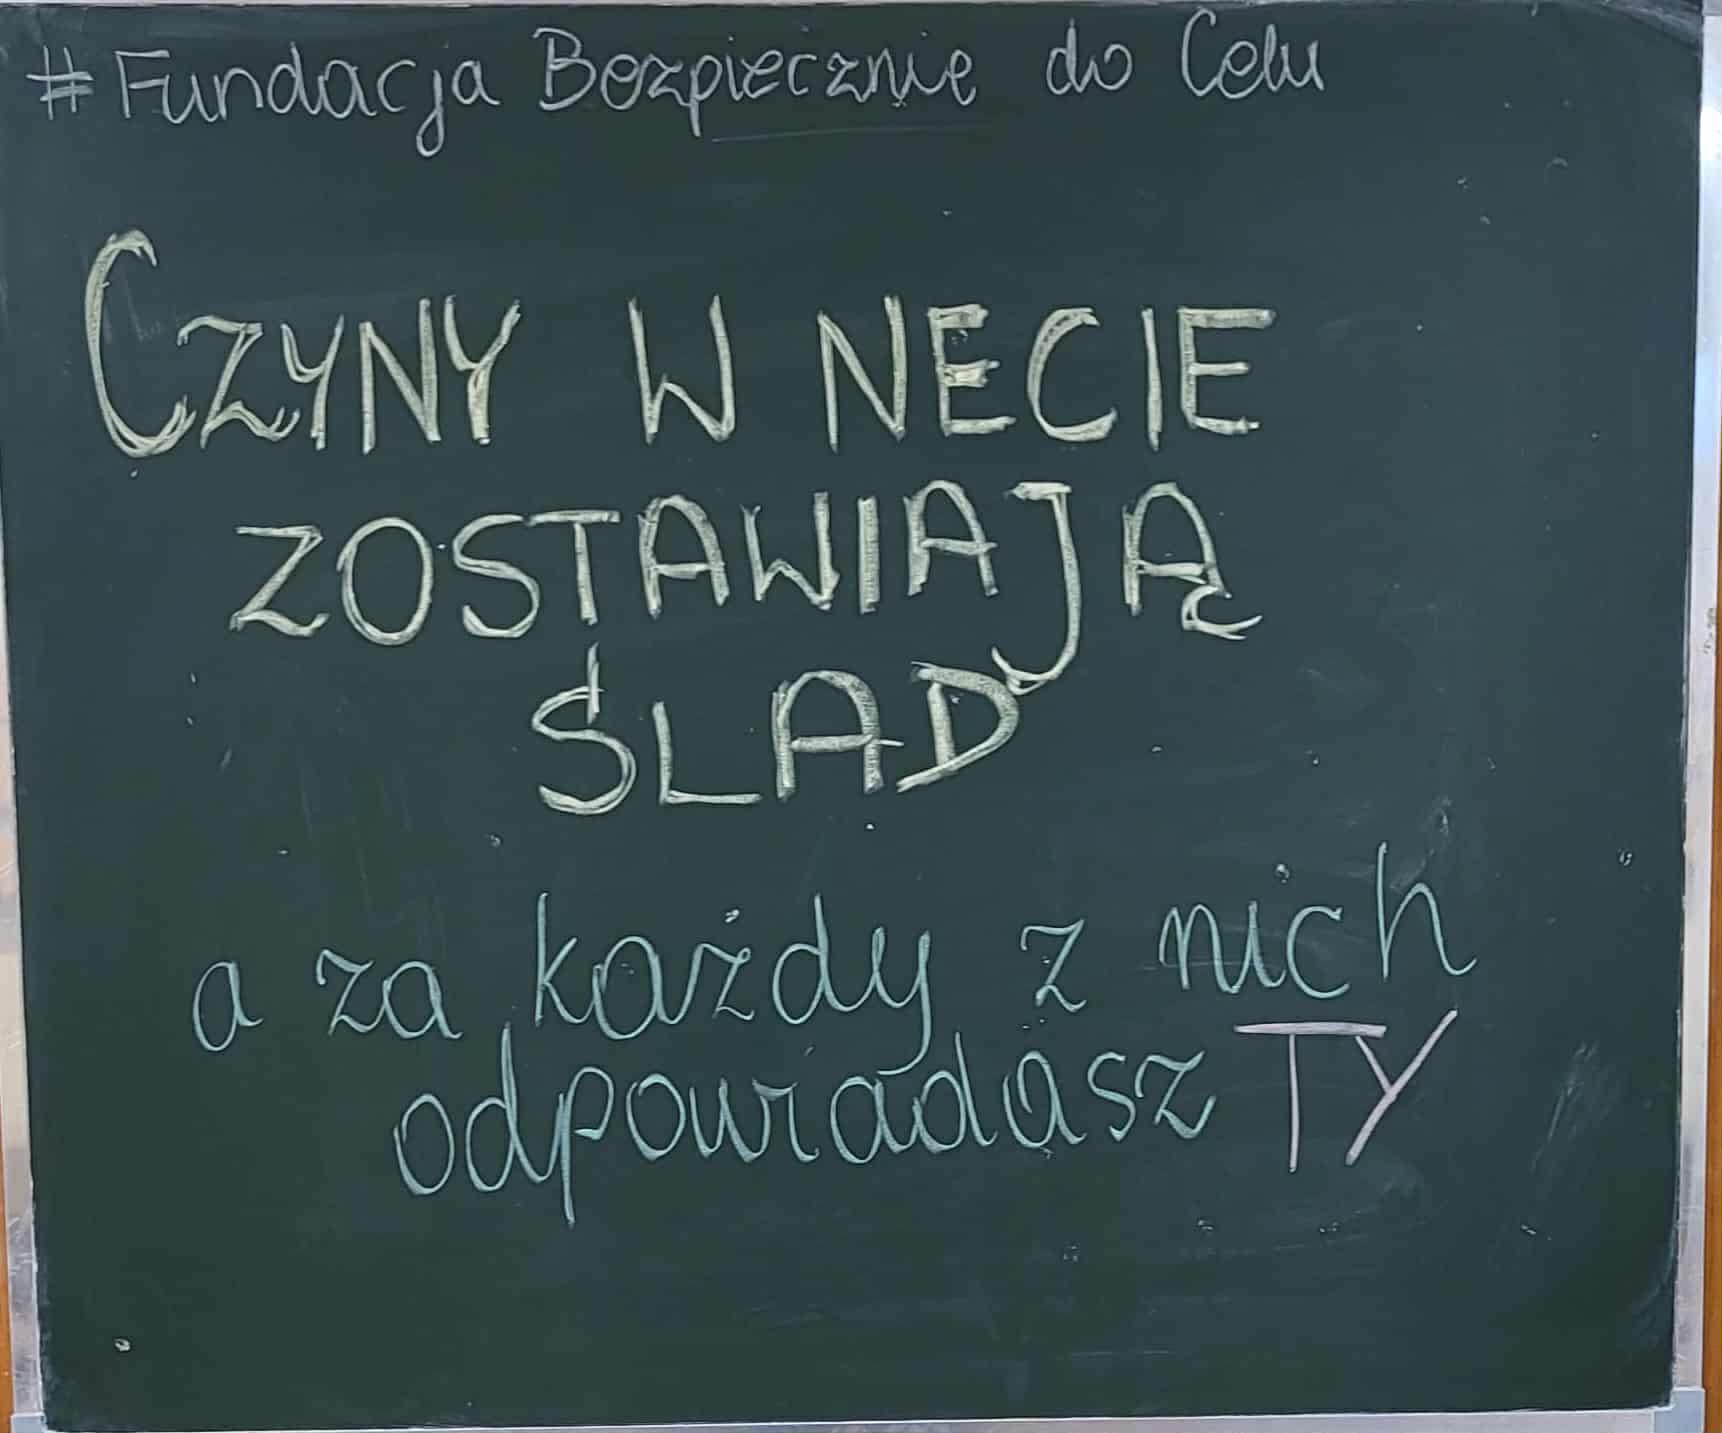 #Fundacja Bezpiecznie do Celu
CZYNY W NECIE
ZOSTAWIAJĄ
ŚLAD
a za każdy z nich
odpowiadasz TY